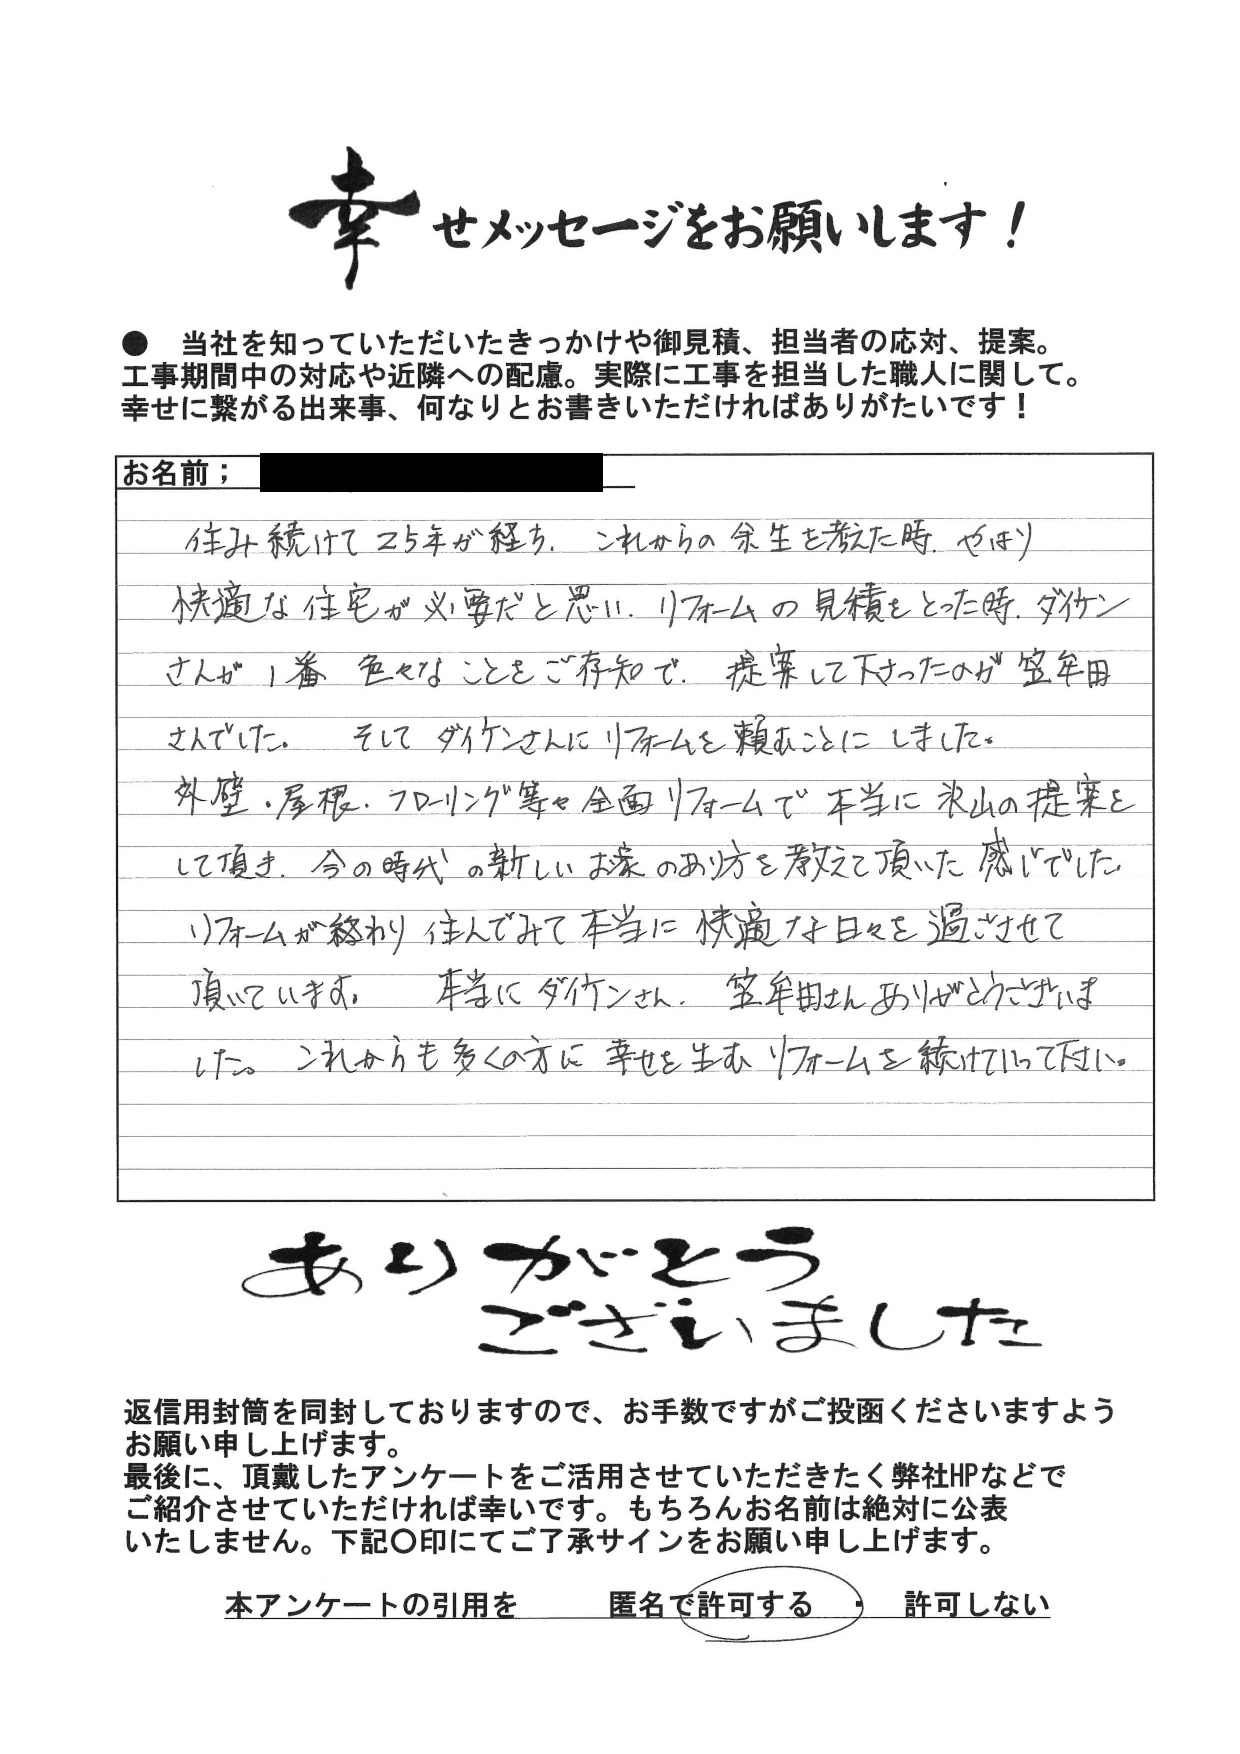 幸せメッセージをお願いします！
●　当社を知っていただいたきっかけや御見積、担当者の応対、提案。
工事期間中の対応や近隣への配慮。実際に工事を担当した職人に関して。
幸せに繋がる出来事、何なりとお書きいただければありがたいです！
お名前；
住み続けて25年が経ち、これからの余生を考えた時、やはり
快適な住宅が必要だと思い、リフォームの見積をとった時、ダイケン
さんが1番 色々なことをご存知で、提案して下さったのが笠牟田
さんでした。 そしてダイケンさんにリフォームを頼むことにしました。
外壁・屋根・フローリング等々全面リフォームで本当に沢山の提案を
して頂き、今の時代の新しいお家のあり方を教えて頂いた感じでした。
リフォームが終わり住んでみて本当に快適な日々を過ごさせて
頂いています。 本当にダイケンさん、笠牟田さんありがとうございま
した。これからも多くの方に幸せを生むリフォームを続けていって下さい。
ありがとう
ございました
返信用封筒を同封しておりますので、お手数ですがご投函くださいますよう
お願い申し上げます。
最後に、頂戴したアンケートをご活用させていただきたく弊社HPなどで
ご紹介させていただければ幸いです。もちろんお名前は絶対に公表
いたしません。下記〇印にてご了承サインをお願い申し上げます。
本アンケートの引用を　匿名で許可する　・　許可しない